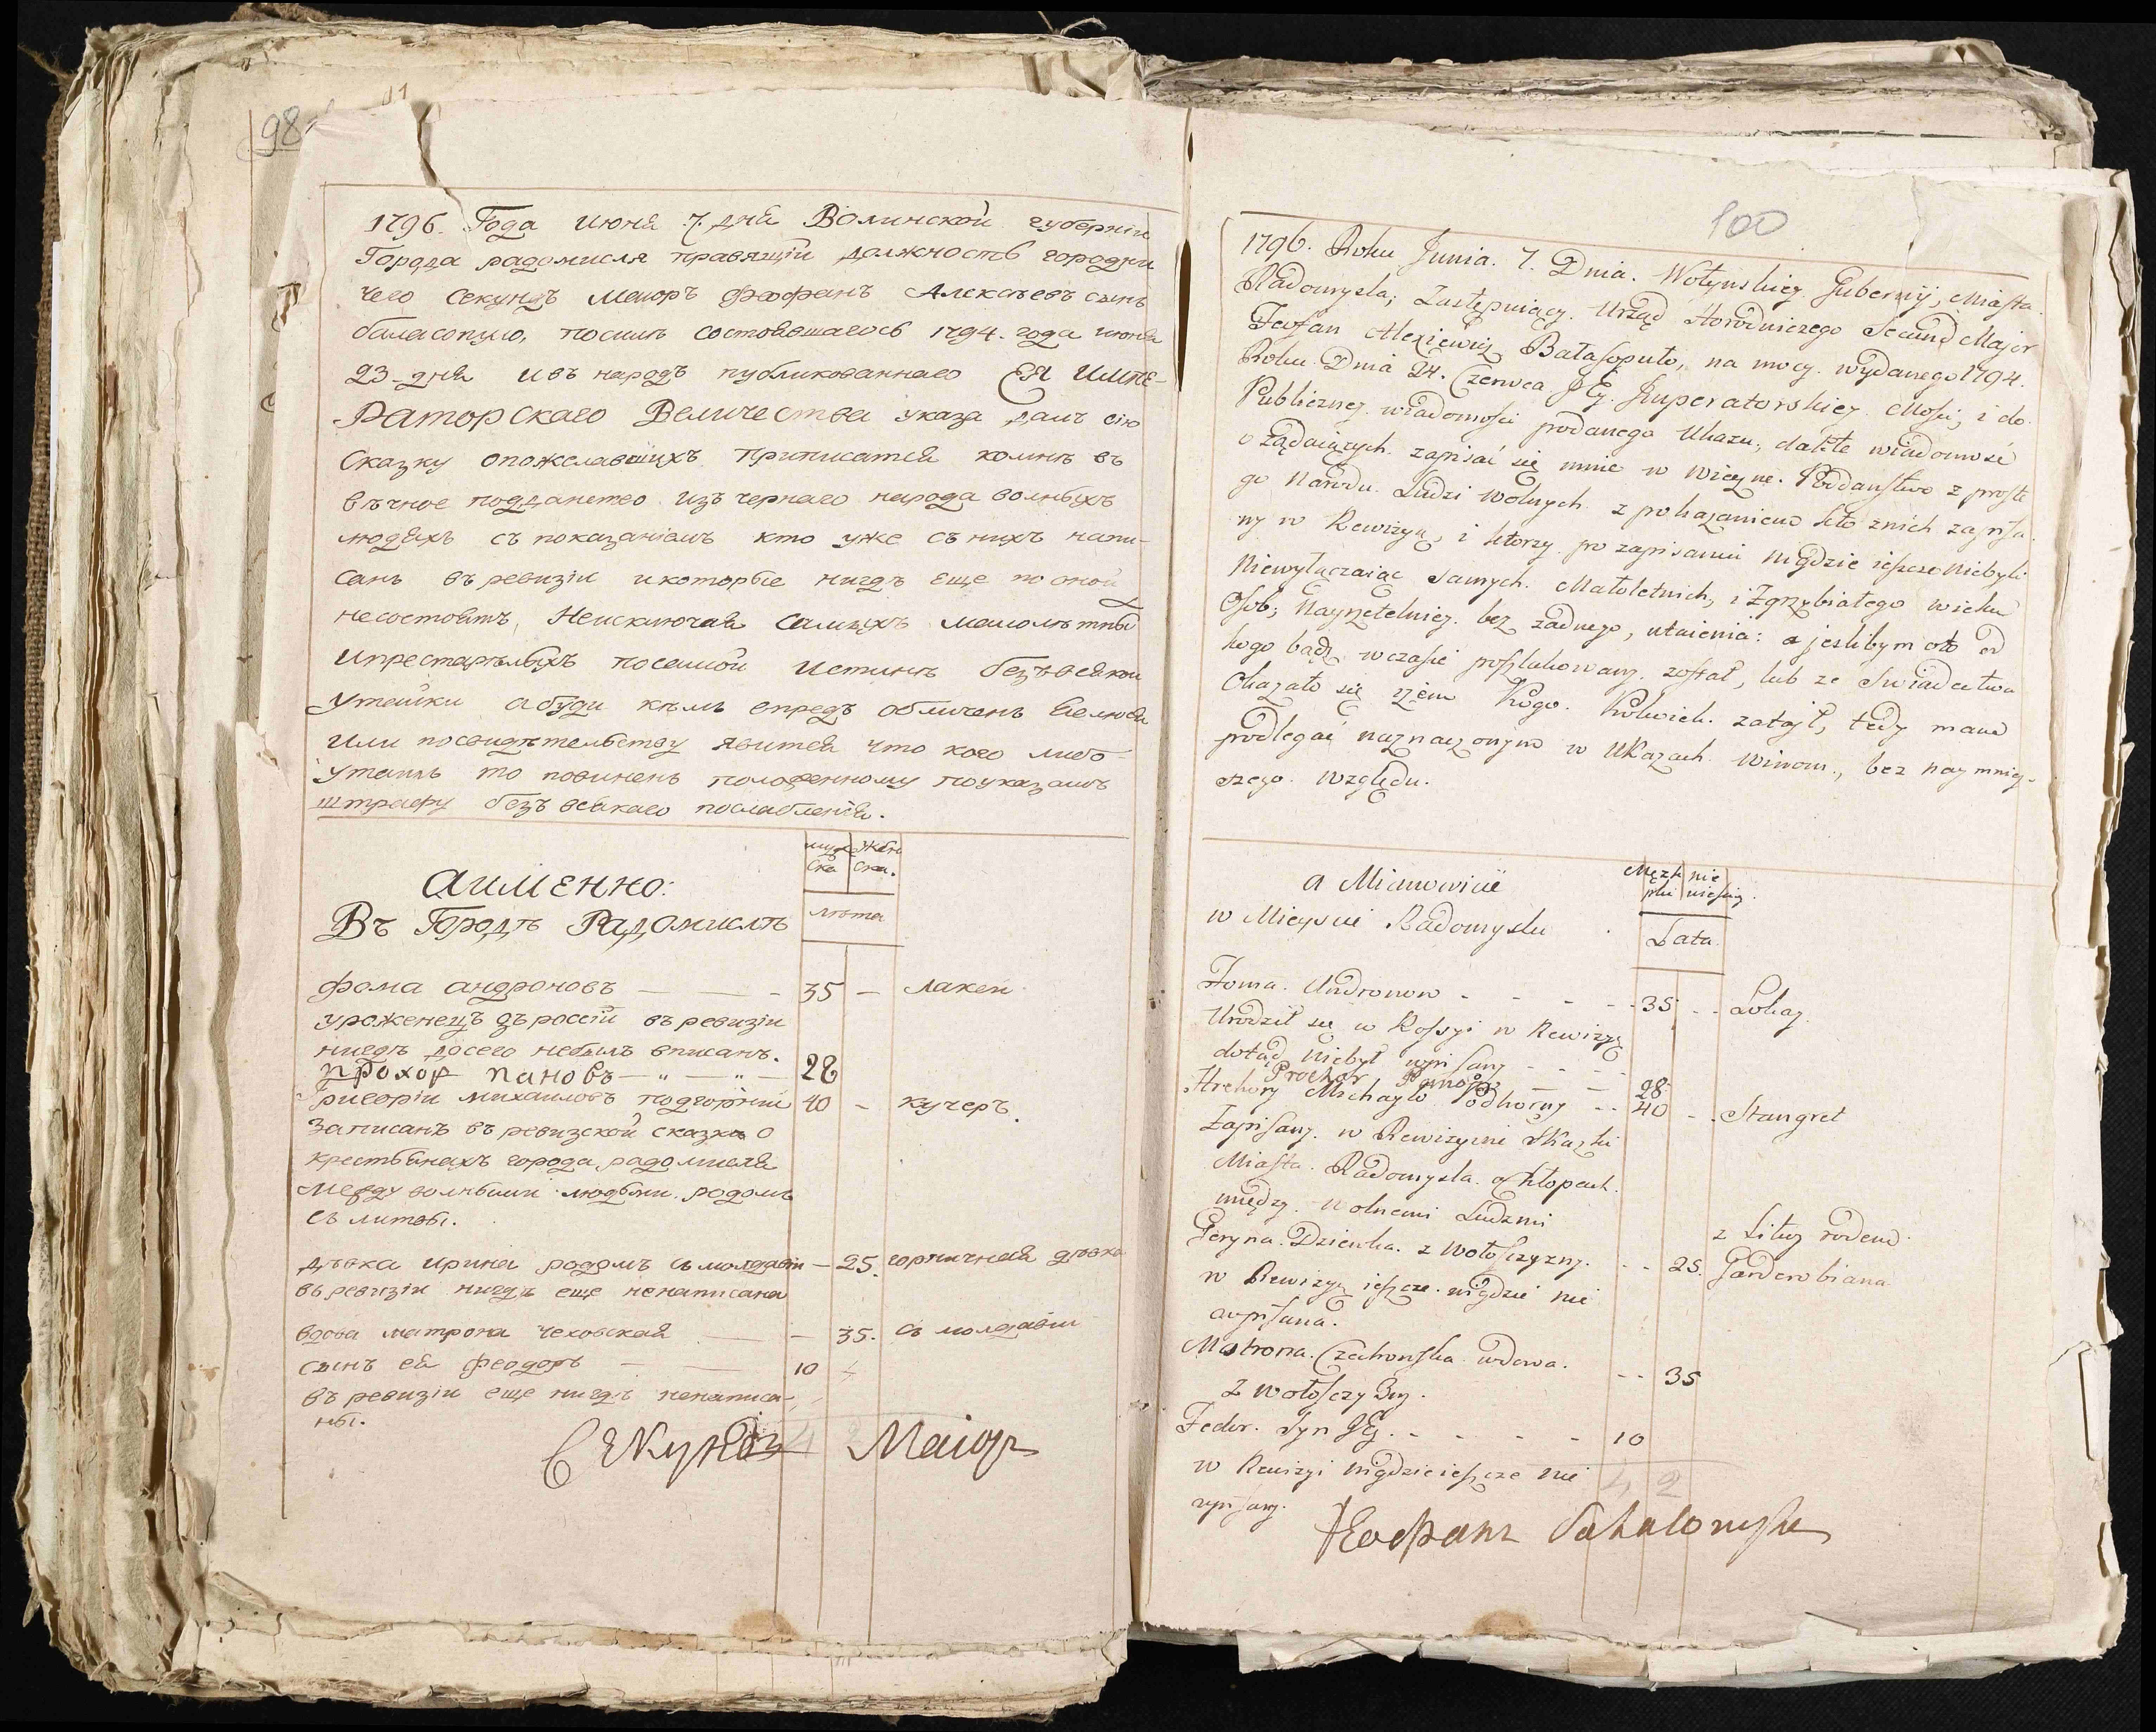 98
1796. Года июня 7. дня Волинской губернiи
Города радомисля правящiй должность городни
чего Секундъ Маиоръ Феофанъ Алексѣевъ сынъ
баласопуло, посилѣ состоявшагось 1794. года июня
23-дня ивъ народъ публикованнаго ЕЯ ИМПЕ-
Раторскаго Величества указа далъ сiю
Сказку опожелавшихъ приписатся комнѣ въ
вѣчное подданство изъ чернаго народа волныхъ
людяхъ съ показанiемъ кто уже съ нихъ напи-
санъ въ ревизiи икоторые нигдѣ еще по оной
несостоятъ, Неисключая самыхъ малолѣтны
ипрестарѣлыхъ посамой истинѣ безъ всякои
утайки абуди кѣмъ впредъ обличенъ
или посвидѣтельству явится что кого либо
утаилъ то повиненъ положенному поуказамъ
штрафу безъ всякаго послабленiя.
аимЕнно:
муж жен
ска ска.
Въ Городѣ Радомислѣ
лѣта
фома андроновъ — — - 35 — лакеи
уроженецъ зъ россiи въ ревизiи
нигдѣ досего небылъ вписанъ.
прохор пановъ — „ — „ — 28
Григорiи михаиловъ подгорнiи 40 - кучеръ.
Записанъ въ ревизской сказкѣ о
крестьянахъ города радомисля
Между волными людьми. родомъ
съ литвы.
дѣвка ирина родомъ съ молдавiи — 25. горничная дѣвка
въ ревизiи нигдѣ еще ненаписана
вдова матрона чеховская — — 35. съ молдавiи
сынъ ея феодоръ — — 10
въ ревизiи еще нигдѣ ненаписа-
ны.
4 2
СЕкундъ Маиоръ
100
1796. Roku Junia. 7. Dnia. Wołynskiey Gubernij, Miasta.
Radomysla, Zastępuiący. Urząd Horodniczego Secund Major
Feofan Alexiewicz Bałasopuło, na mocy. wydanego 1794.
Roku. Dnia 24. Czerwca JEy. Imperatorskiey. Mości, i do.
Publiczney. wiadomości podanego Ukazu, wiadomość
o żądaiących. zapisać się mnie w wieczne. Poddaństwo z proste
go Narodu. Ludzi wolnych. z pokazaniem kto znich zapisa
ny w Rewizyą, i ktorzy. po zapisaniu nigdzie ieszcze niebyli
Niewyłączaiąc samych. Małoletnich, i Zgrzybiałego wieku
Osob, Nayrzetelniey. bez żadnego, utaienia: a jeslibym oto od
kogo bądz wczasie poszlakowany. został, lub ze Swiadectwa
Okazało się żem Kogo. Kolwiek. zataił, tedy mam
podlegać naznaczonym w Ukazach. winom, bez naymniey-
szego. względu.
a Mianowicie
Męzk nie
ska wieska.
w Mieyscie Radomyslu
Lata.
Foma. Andronow - - - - - 35 - - Lokay.
Urodził się w Rossyi w Rewizyą
dotąd niebył wpisany - - - -
Prochor Panow — — 28
Hrehory Michayło Podhorny - - 40 - . Stangret
Zapisany. w Rewizyine Skazki
Miasta. Radomysla. o Chłopach.
między. wolnemi Ludzmi
z Litwy rodem.
Jeryna. Dziewka. z wołoszczyzny. - - 25. Garderobiana
w Rewizyą ieszcze. nigdzie nie
wpisana.
Matrona. Czechowska. wdowa. - - 35
Z wołoszczyzny.
Fedor. Syn JEy. - - - - - 10
w Rewizyi nigdzie ieszcze nie
wpisany.
4 2
Феофанъ